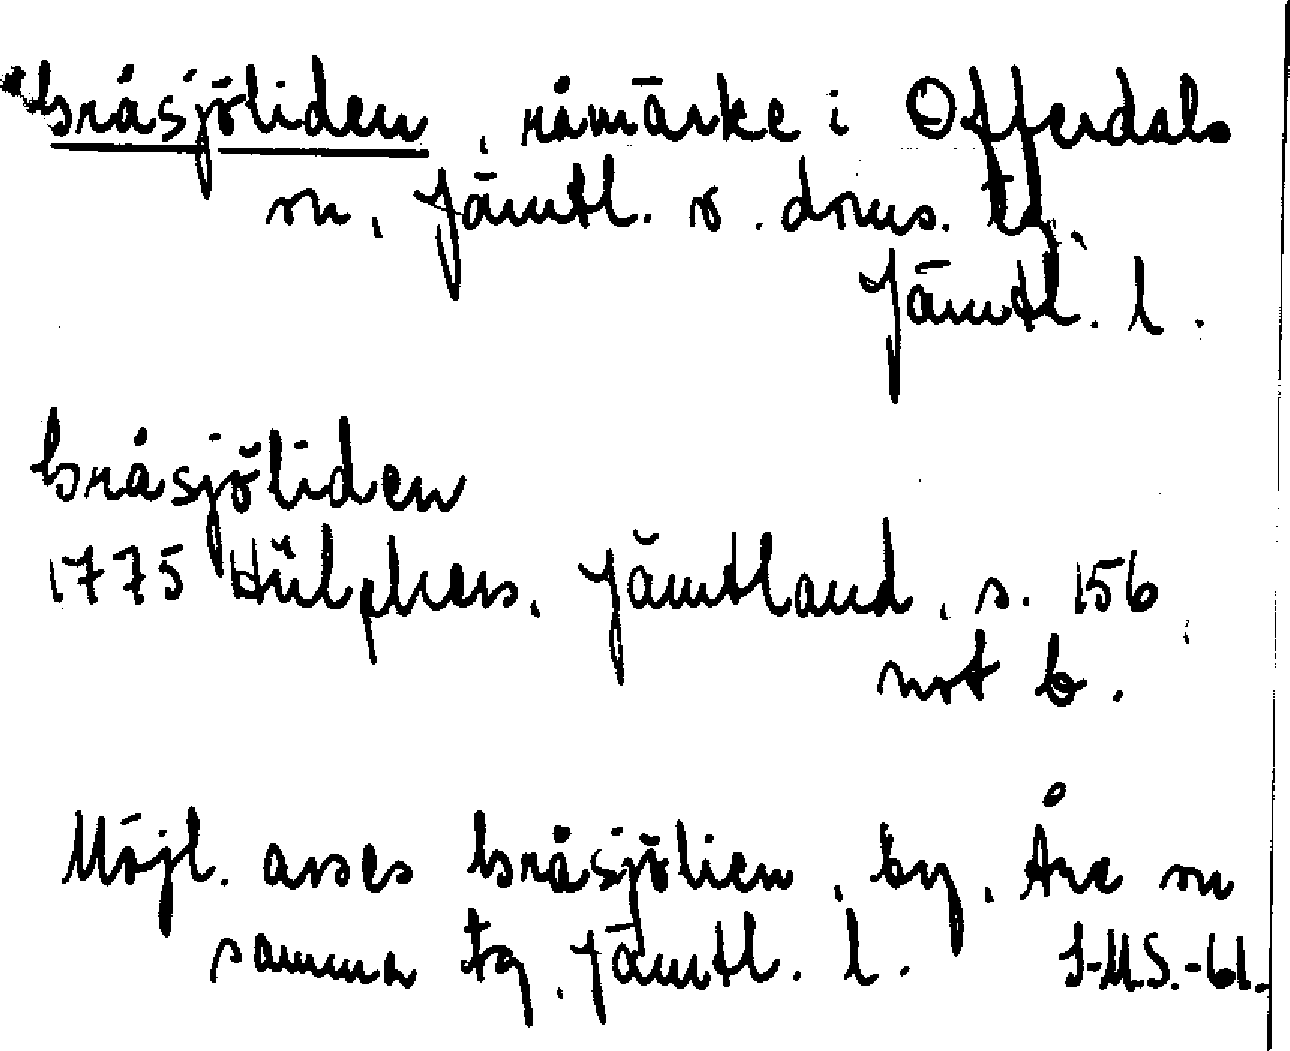 Gråsjöliden, råmärke i Offerdals
sn, Jämtl. v. doms. tg,
Jämtl. l.
Gråsjöliden
1775 Hülphers, Jämtland, s. 156,
not b.
Möjl. avses Gråsjölien, by, Åre sn
samma tg, Jämtl. l. I-M.S.-61.